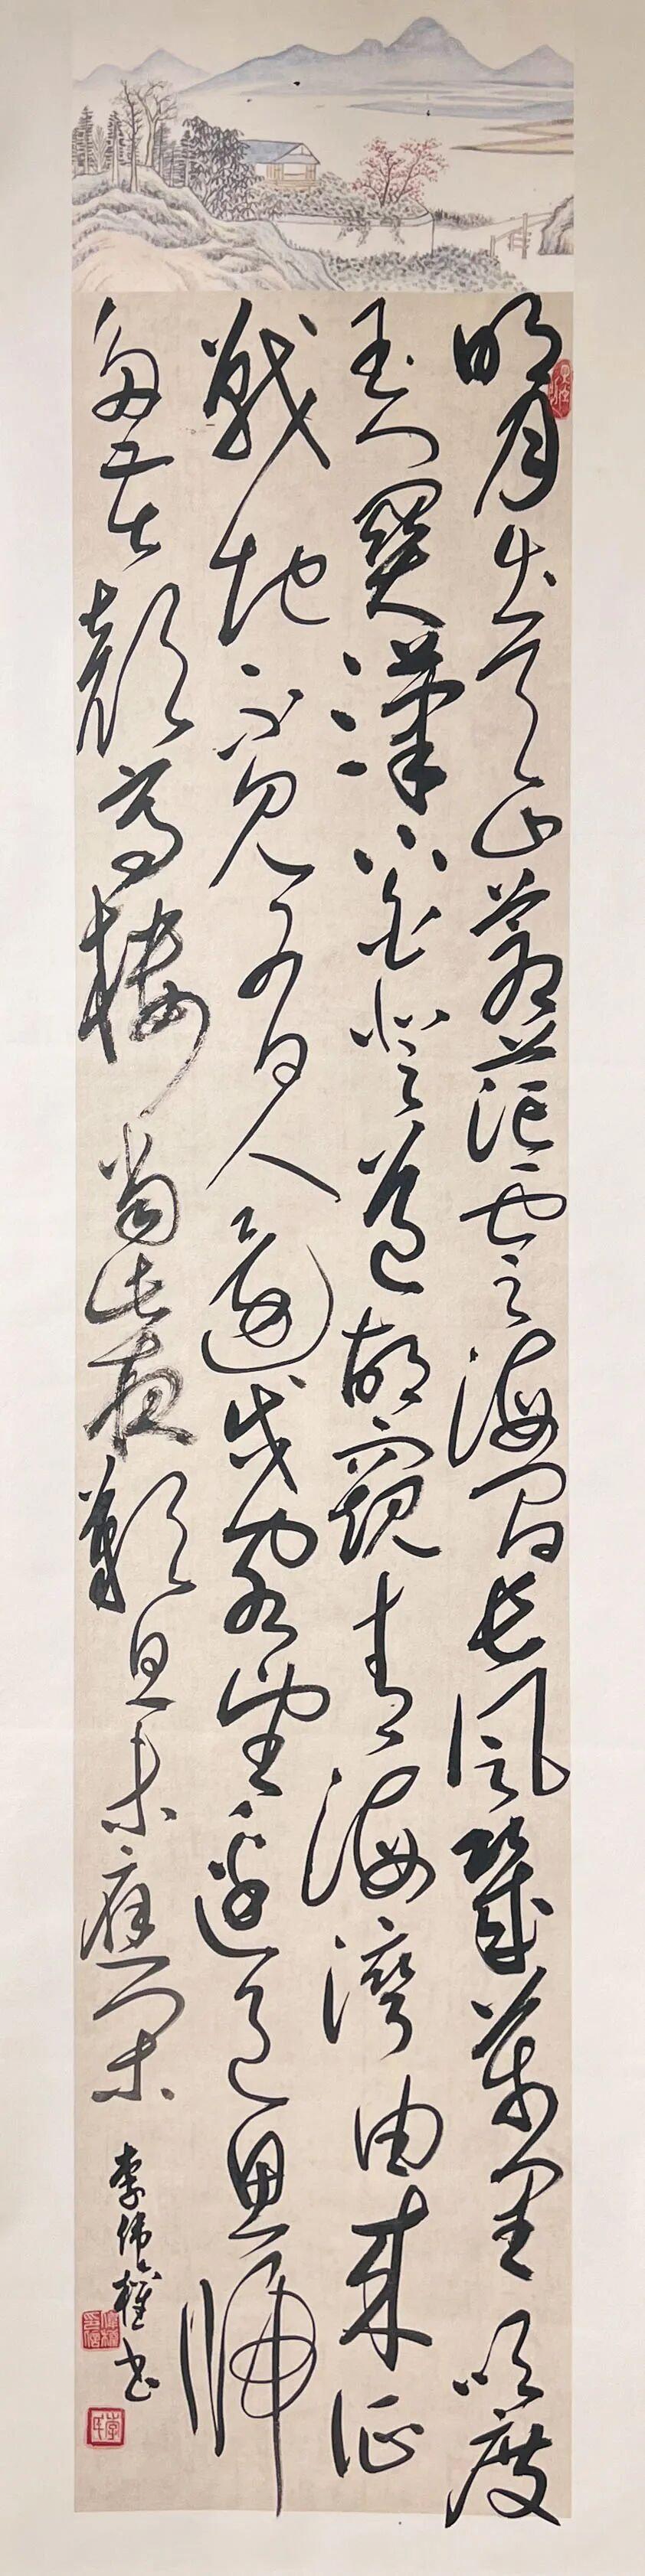 明月出天山蒼茫雲海間長風幾萬里吹度
玉門關漢下白登道胡窺青海灣由來征
戰地不見有人還戍客望邊色思歸
多苦顏高樓當此夜歎息未應閑
李偉權书